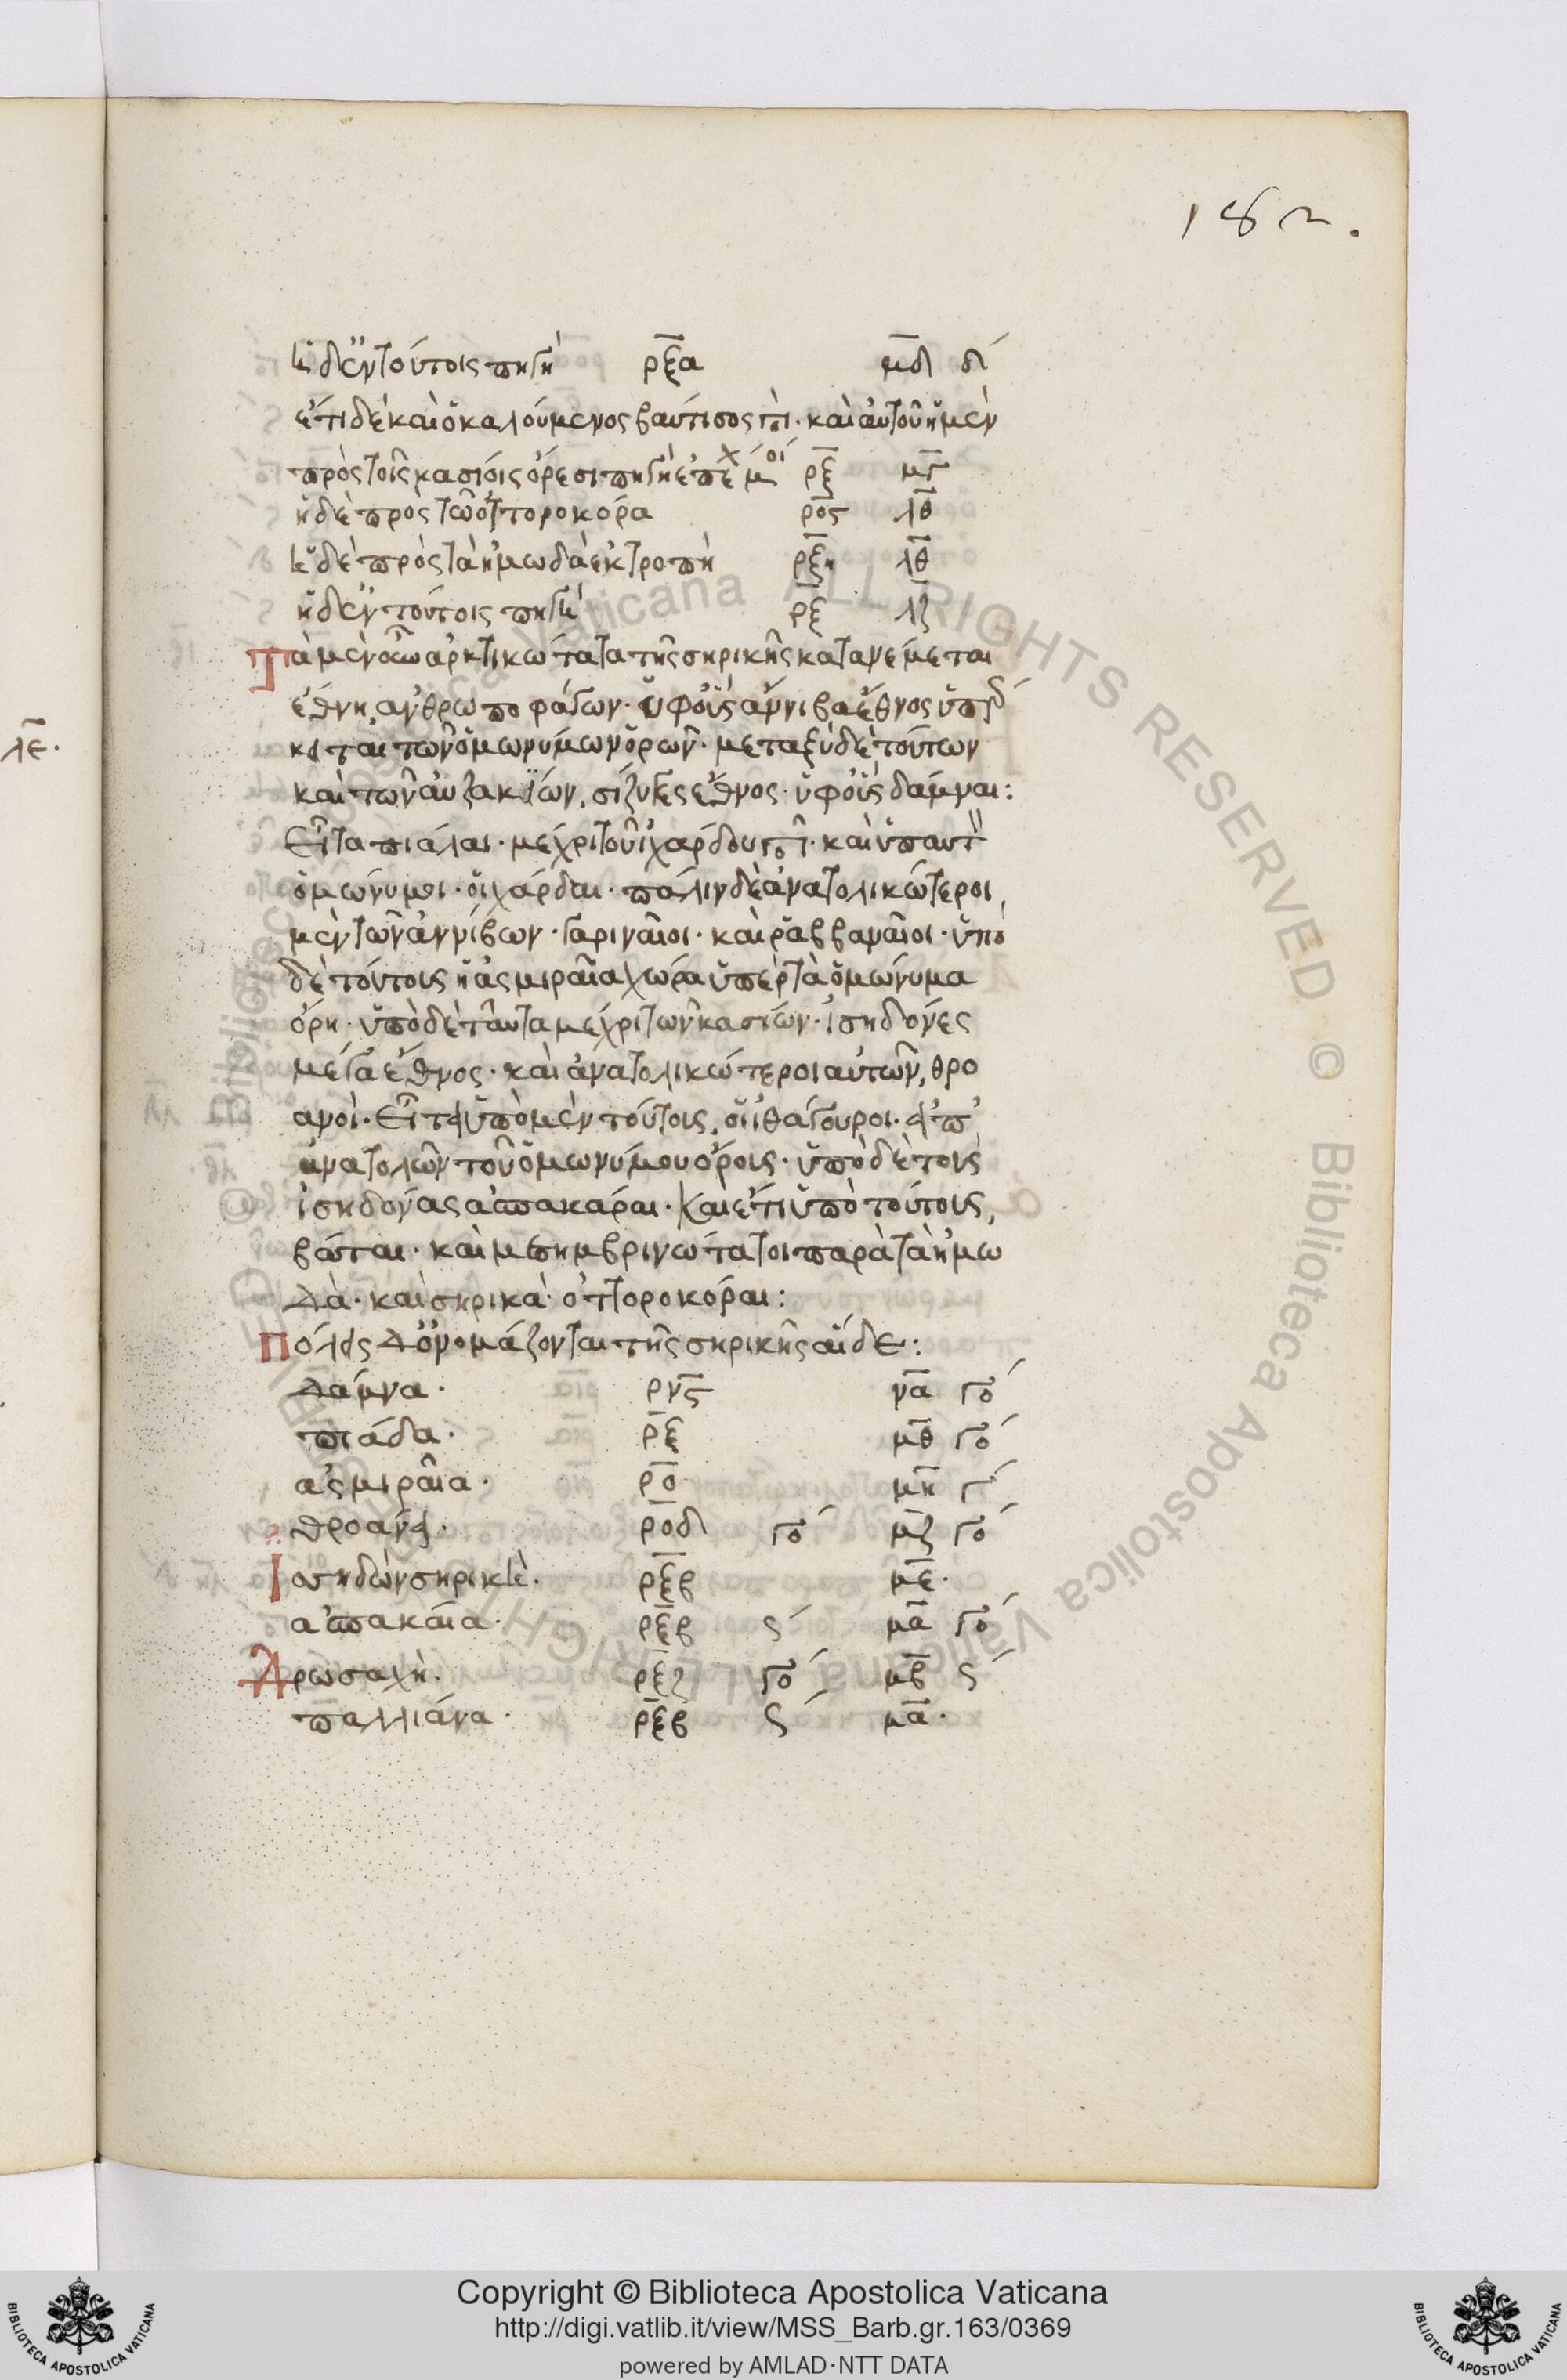 182.
ἡ δ' ἐν τούτοις πηγὴ ρξα μδ δ´
ἔτι δὲ καὶ ὁ καλούμενος βαύτισος πτ. καὶ αὐτοῦ ἡ μὲν
πρὸς τοῖς κασίοις ὄρεσι πηγὴ ἐπέχ μοί ρξ μγ
ἡ δὲ πρὸς τῶ ὀττοροκόρα ρος λθ
ἡ δὲ πρὸς τὰ ἠμωδὰ ἐκτροπὴ ρξη λθ
ἡ δ' ἐν τούτοις πηγὴ ρξ λζ
Τὰ μὲν οὖν ἀρκτικώτατα τῆς σηρικῆς κατανέμεται
λε.
ἔθνη ἀνθρωποφάγων. ὑφ' οὓς ἄννιβα ἔθνος ὑπὲρ
κειται τῶν ὁμωνύμων ὀρῶν. μεταξὺ δὲ τούτων
καὶ τῶν αὐζακίων, σίζυγες ἔθνος. ὑφ' οὓς δάμναι:
Εἶτα πιάλαι. μέχρι τοῦ οἰχάρδου ποτ. καὶ ὑπ' αυτ
ὁμώνυμοι. οἰχάρδαι. πάλιν δὲ ἀνατολικώτεροι
μὲν τῶν ἀννίβων. γαριναῖοι. καὶ ῥαββαναῖοι. ὑπὸ
δὲ τούτους ἡ ἀσμιραία χώρα ὑπὲρ τὰ ὁμώνυμα
ὄρη. ὑπὸ δὲ ταῦτα μέχρι τῶν κασίων. ἰσηδόνες
μέγα ἔθνος. καὶ ἀνατολικώτεροι αὐτῶν, θρο
ανοὶ. Εἶτα ὑπὸ μὲν τούτοις, οἱ ἰθάγουροι. ἀπ'
ἀνατολῶν τοῦ ὁμωνύμου ὄροις. ὑπὸ δὲ τοὺς
ἰσηδόνας ἀσπακάραι. καὶ ἔτι ὑπὸ τούτους,
βάται. καὶ μεσημβρινώτατοι παρὰ τὰ ἠμω
δὰ. καὶ σηρικὰ. ὀττοροκόραι:
Πόλεις δ' ὀνομάζονται τῆς σηρικῆς αἵδε:
δάμνα. ρνς να γο´
πιάδα. ρξ μθ γο´
ἀσμιραία. ρο μη γ´
θροάνα. ροδ γο´ μζ γο´
Ισσηδὼν σηρικὴ. ρξβ με.
ἀσπακαία. ρξβ ς´ μα γο´
Δρωσαχὴ. ρξζ γο´ μβ ς´
παλλιάνα. ρξβ ς´ μα.
© Biblioteca Apostolica Vaticana ALL RIGHTS RESERVED
Copyright © Biblioteca Apostolica Vaticana
http://digi.vatlib.it/view/MSS_Barb.gr.163/0369
powered by AMLAD·NTT DATA
BIBLIOTECA APOSTOLICA VATICANA
BIBLIOTECA APOSTOLICA VATICANA